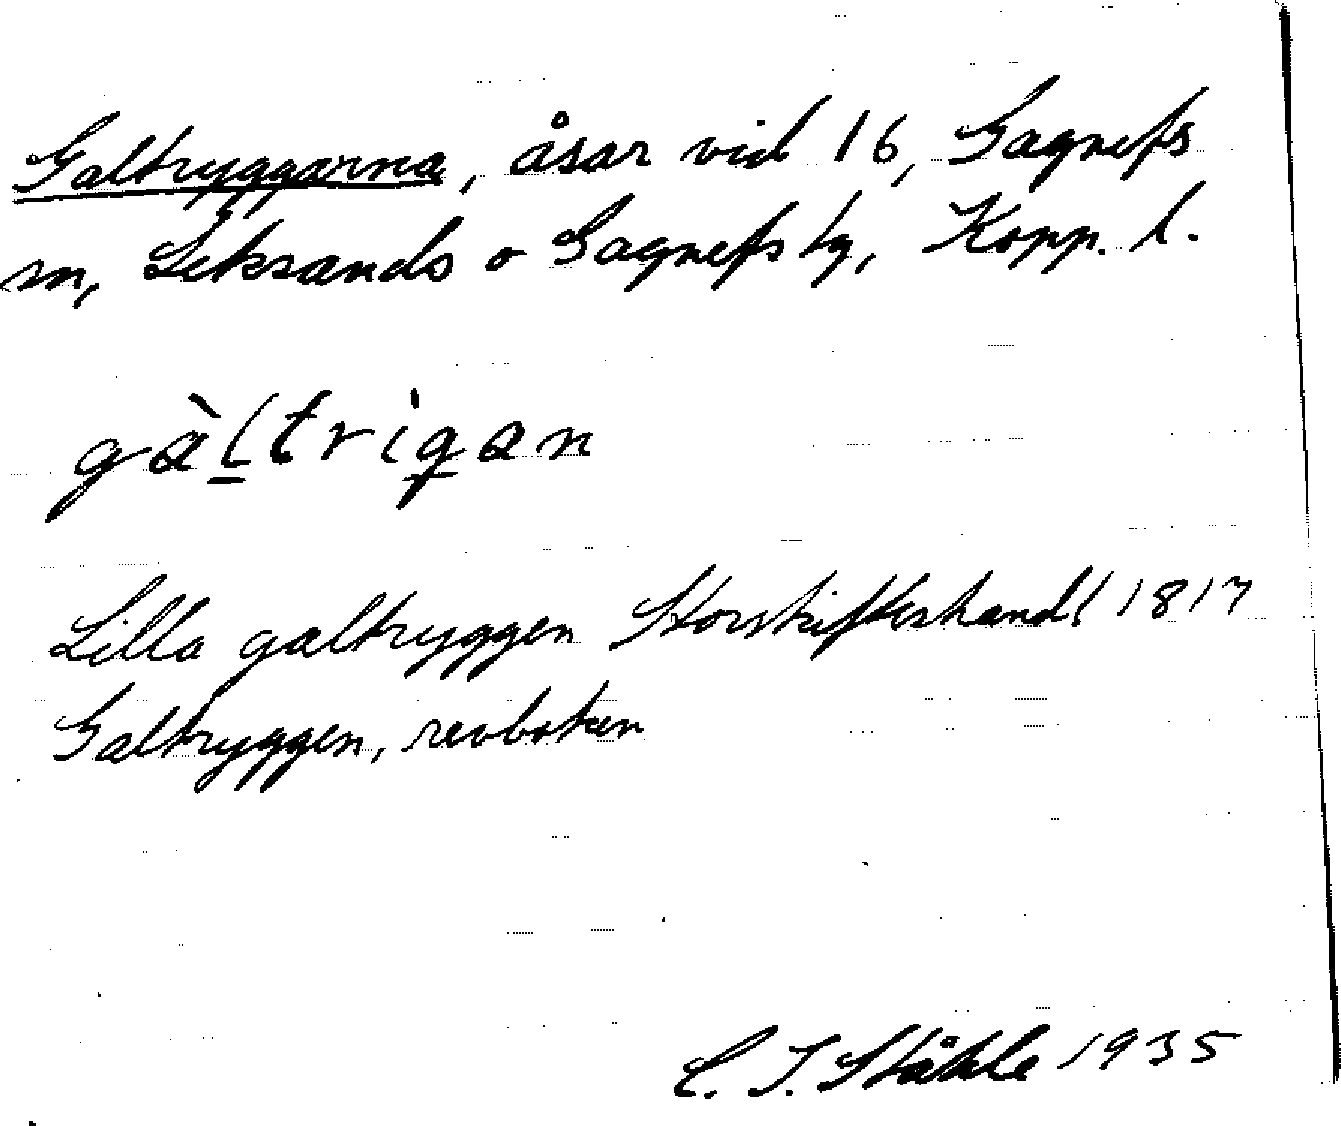 Galtryggarna, åsar vid 16, Gagnefs
sn, Leksands o Gagnefs tg, Kopp. l.
gàl̠trig̠an
Lilla galtryggen Storskifteshandl 1817
Galtryggen, revboken
C. I. Ståhle 1935